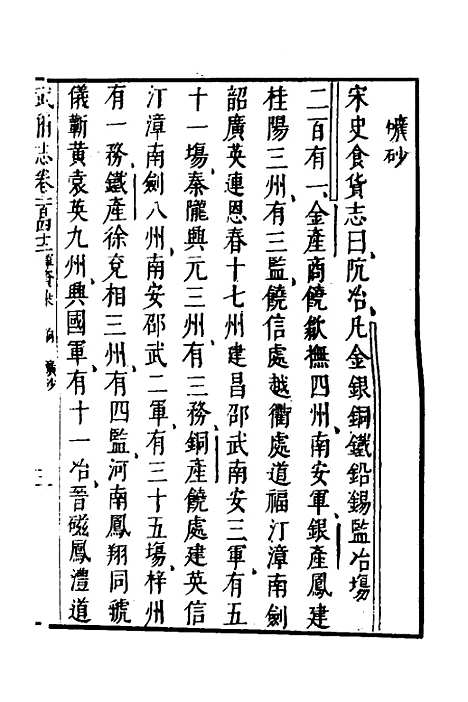 礦砂
宋史食貨志曰阬冶凡金銀銅鐵鉛錫監冶塲
二百有一金產商饒歙撫四州南安軍銀產鳳建
桂陽三州有三監饒信處越衢處道福汀漳南劍
韶廣英連恩春十七州建昌邵武南安三軍有五
十一塲秦隴興元三州有三務銅產饒處建英信
汀漳南劍八州南安邵武二軍有三十五塲梓州
有一務鐵產徐兗相三州有四監河南鳳翔同虢
儀蘄黃袁英九州興國軍有十一冶晉磁鳳澧道
武備志卷一百四十二 軍資乘 餉 礦砂